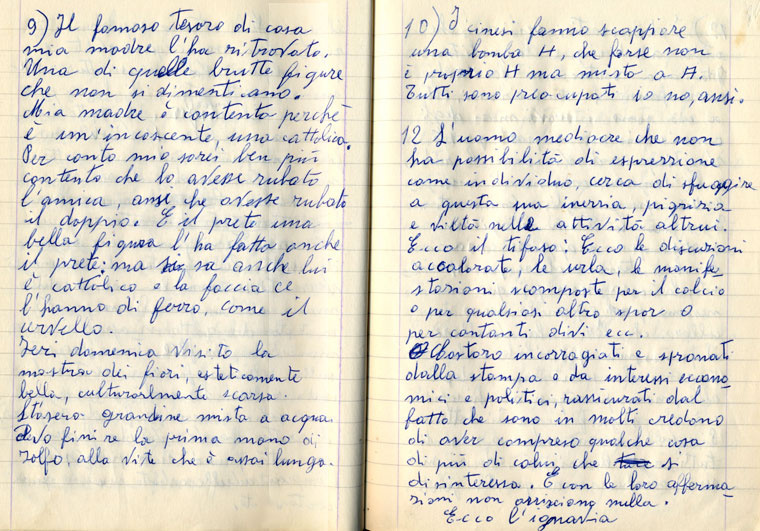 9) Il famoso tesoro di casa
mia madre l'ha ritrovato.
Una di quelle brutte figure
che non si dimenticano.
Mia madre è contenta perchè
è un'incoscente, una cattolica.
Per conto mio sarei ben più
contento che lo avesse rubato
l'amica, anzi che avesse rubato
il doppio. E il prete una
bella figura l'ha fatta anche
il prete: ma si sa anche lui
è cattolico e la faccia ce
l'hanno di ferro, come il
cervello.
Ieri domenica visito la
mostra dei fiori, esteticamente
bella, culturalmente scarsa.
Stasera grandine mista a acqua.
Devo finire la prima mano di
zolfo, alla vite che è assai lunga.
10) I cinesi fanno scoppiare
una bomba H, che forse non
è proprio H ma misto a A.
Tutti sono preocupati io no, anzi.
12 L'uomo mediocre che non
ha possibilità di espressione
come individuo, cerca di sfuggire
a questa sua inerzia, pigrizia
e viltà nelle attività altrui.
Ecco il tifoso: Ecco le discussioni
accalorate, le urla, le manife
stazioni scomposte per il calcio
o per qualsiasi altro spor o
per cantanti divi ecc.
Costoro incorragiati e spronati
dalla stampa e da interessi econo-
mici e politici, rassicurati dal
fatto che sono in molti credono
di aver compreso qualche cosa
di più di colui che si
disinteressa. E con le loro afferma-
zioni non arrischiano nulla.
Ecco l'ignavia